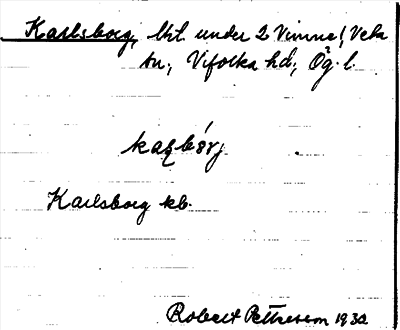 Karlsborg, lht. under 2 Vimne!, Veta
sn., Vifolka hd., Ög. l.
Karlsborg kb.
Robert Pettersson 1932